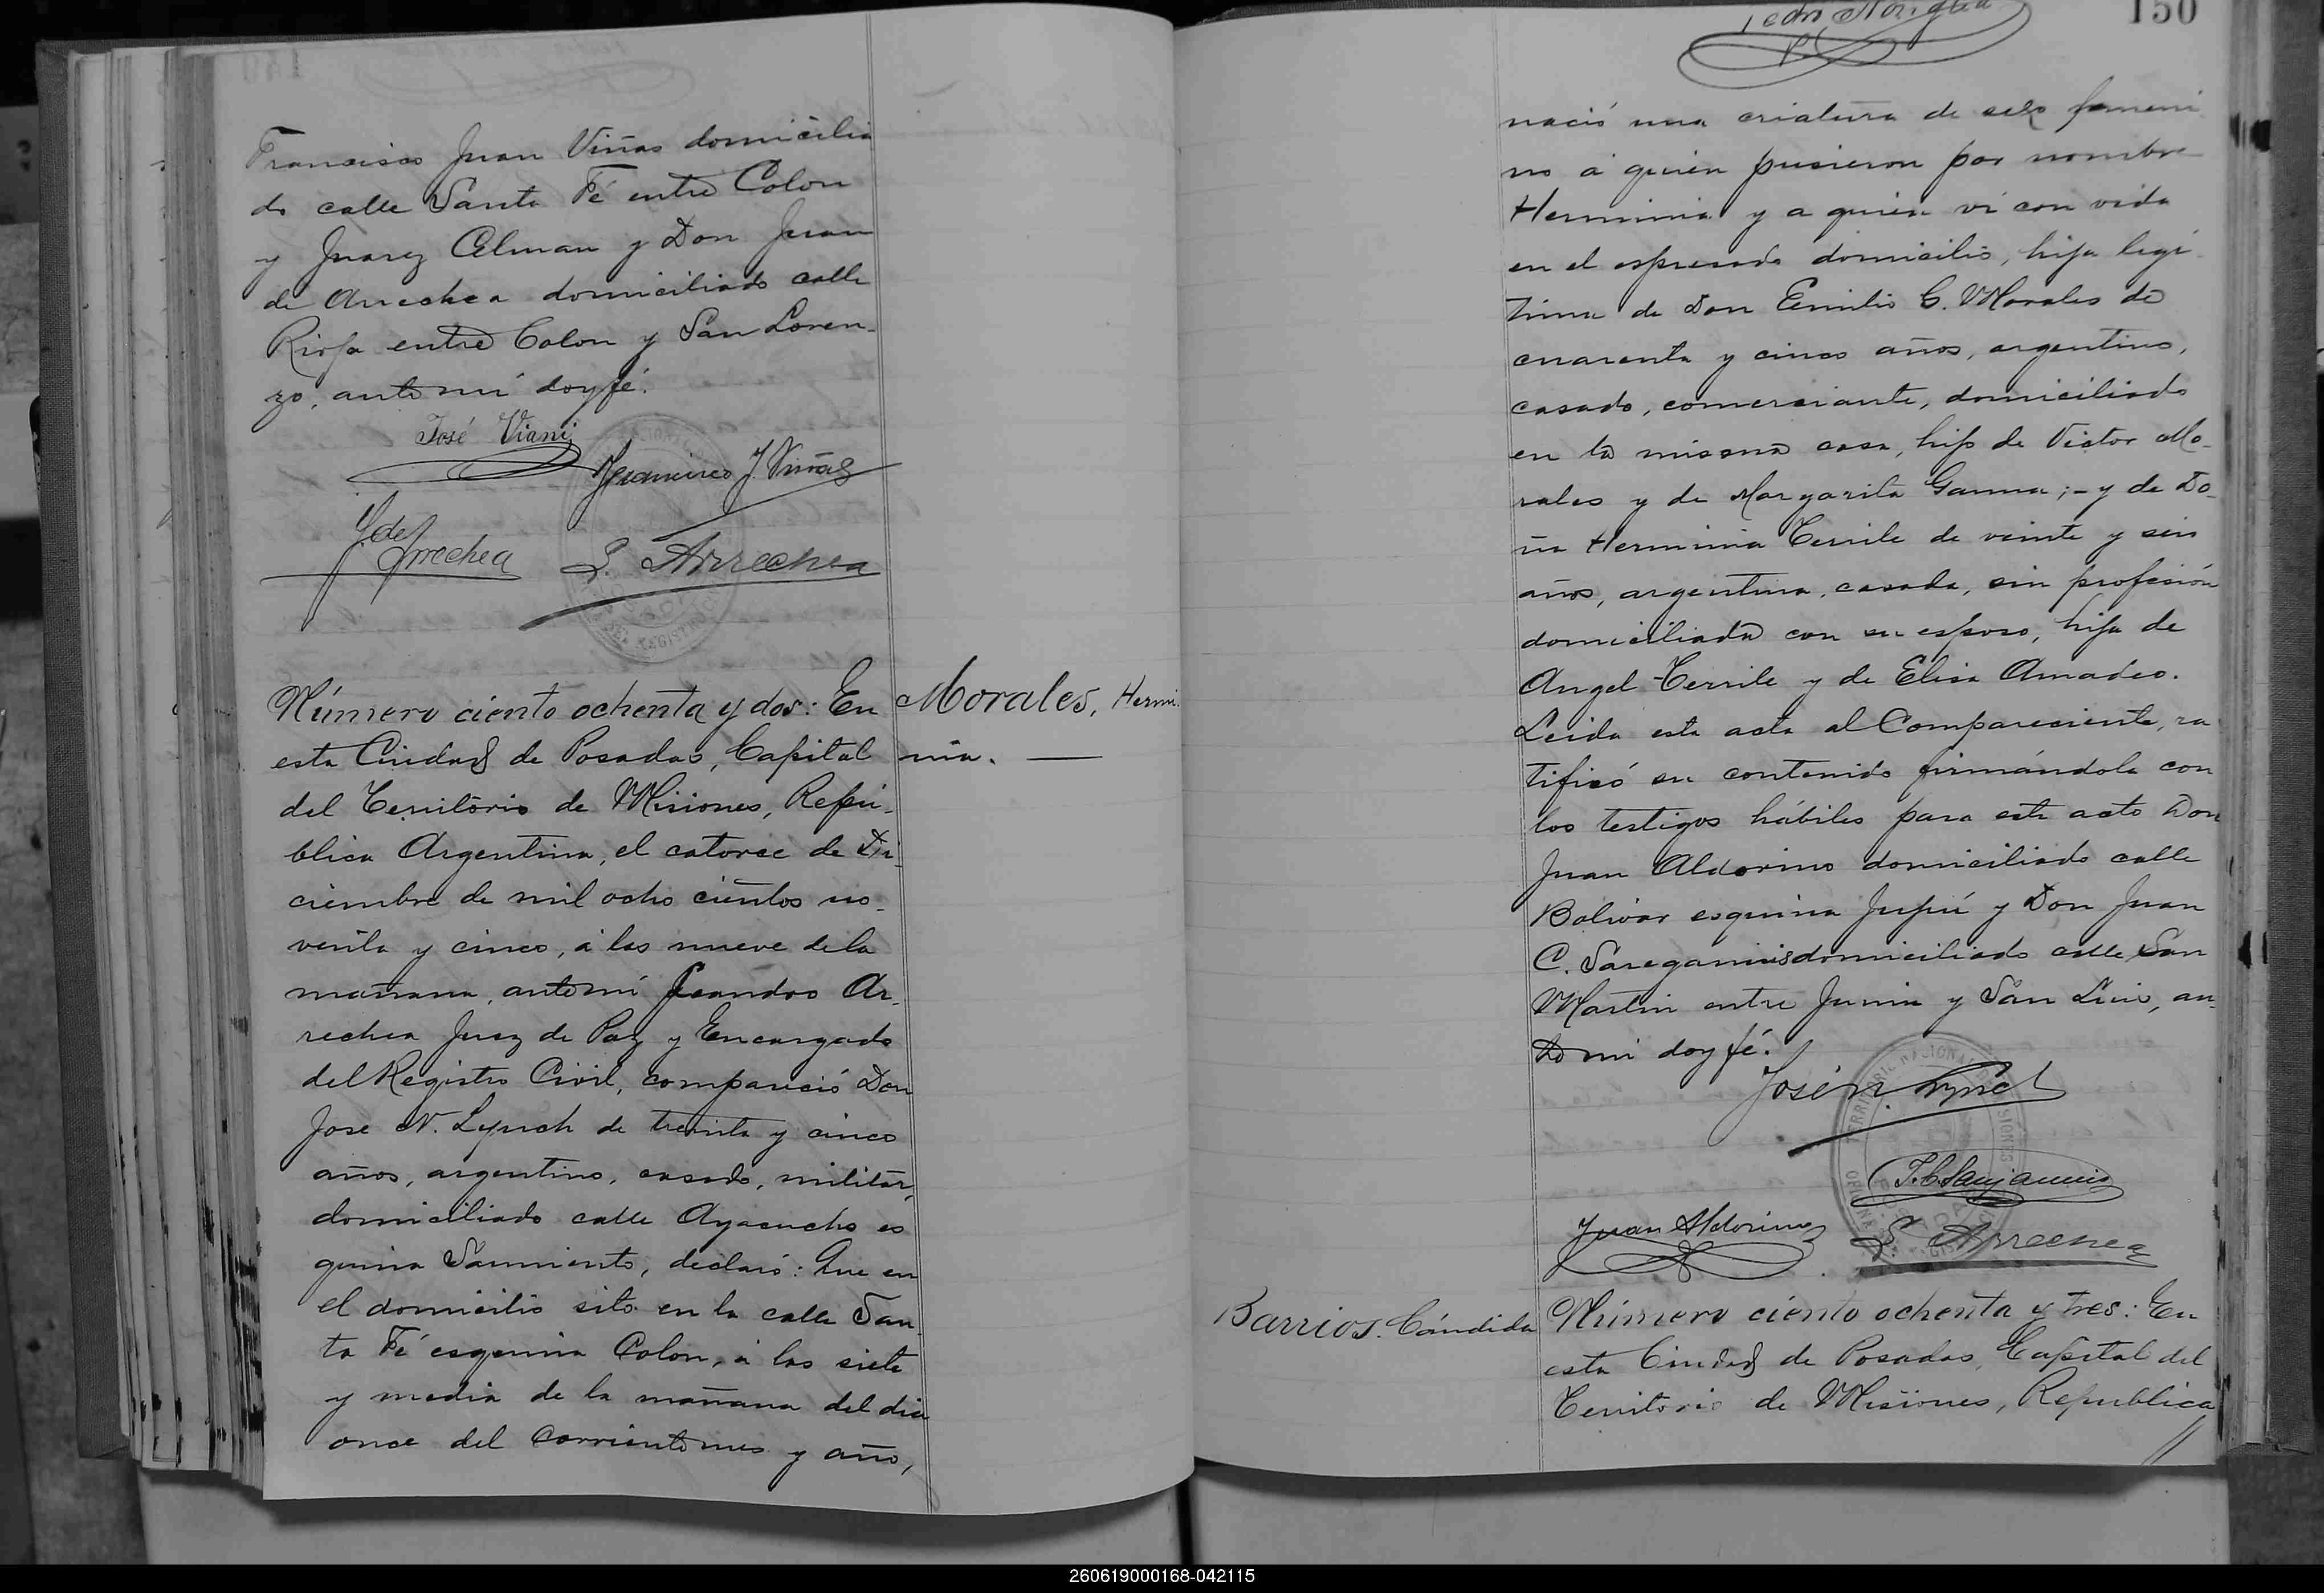 Francisco Juan Viñas domicilia
do calle Santa Fé entre Colon
y Juarez Celman y Don Juan
de Arrechea domiciliado calle
Rioja entre Colon y San Loren-
zo, ante mí doy fé.
José Viani
Francisco J. Viñas
J. de Arrechea
L. Arrechea
Número ciento ochenta y dos: En
Morales, Hermi-
nia.
esta Ciudad de Posadas, Capital
del Territorio de Misiones, Repú-
blica Argentina, el catorce de Di-
ciembre de mil ocho cientos no-
venta y cinco, á las nueve de la
mañana, ante mí Leandro Ar-
rechea Juez de Paz y Encargado
del Registro Civil, compareció Don
Jose N. Lynch de treinta y cinco
años, argentino, casado, militar,
domiciliado calle Ayacucho es
quina Sarmiento, declaró: Que en
el domicilio sito en la calle San
ta Fé esquina Colon, á las siete
y media de la mañana del dia
once del corriente mes y año,
150
nació una criatura de sexo femeni
no á quien pusieron por nombre
Herminia y a quien ví con vida
en el espresado domicilio, hija legí-
tima de Don Emilio C. Morales de
cuarenta y cinco años, argentino,
casado, comerciante, domiciliado
en la misma casa, hijo de Victor Mo-
rales y de Margarita Gauna;- y de Do-
ña Herminia Terrile de veinte y seis
años, argentina, casada, sin profesión
domiciliada con su esposo, hija de
Angel Terrile y de Elisa Amadeo.
Leida esta acta al Compareciente, ra
tificó su contenido firmándola con
los testigos hábiles para este acto Don
Juan Aldorino domiciliado calle
Bolivar esquina Jujuí y Don Juan
C. domiciliado calle San
Martin entre Junin y San Luis, an-
te mi doy fé.
José N. Lynch
Juan Aldorino
L. Arrechea
Barrios. Cándida
Número ciento ochenta y tres: En
esta Ciudad de Posadas, Capital del
Territorio de Misiones, Republica
260619000168-042115